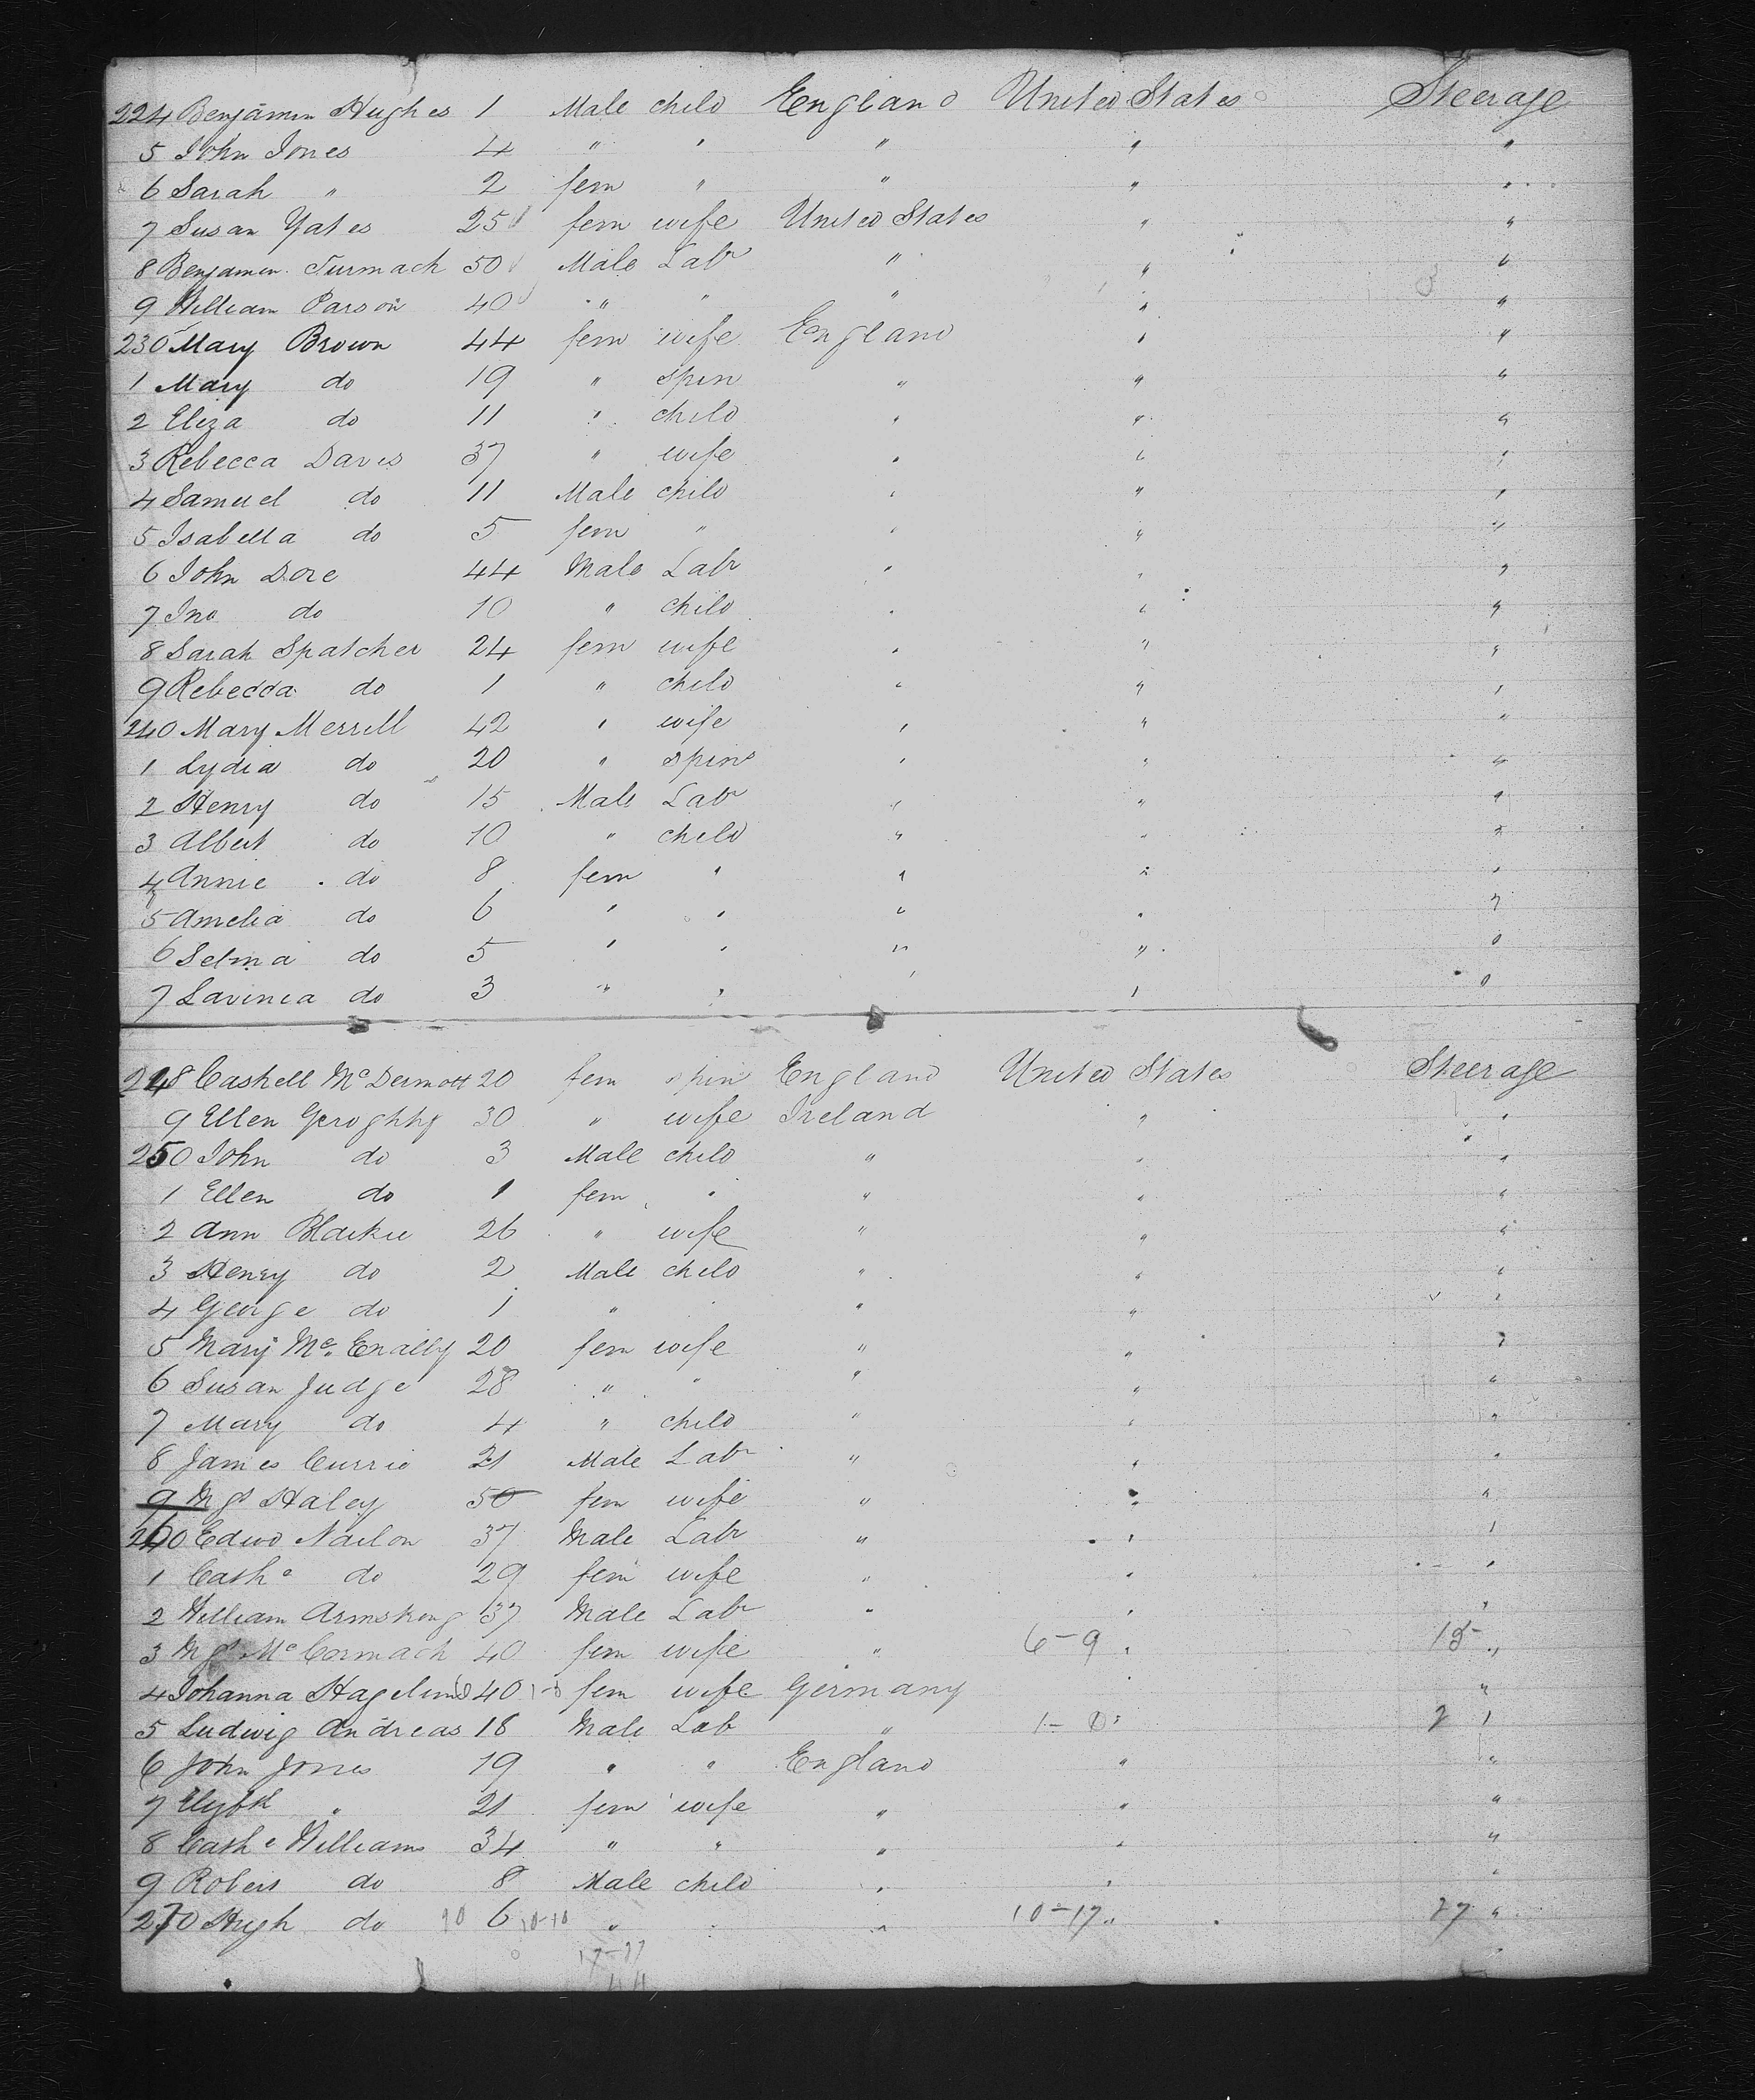 224 Benjamin Hughes 1 Male child England United States Steerage
5 John Jones 4 " " " " "
6 Sarah " 2 fem " " " "
7 Susan Yates 25 fem wife United States " "
8 Benjamin Turmach 50 Male Labr " " "
9 William Parson 40 " " " " "
230 Mary Brown 44 fem wife England " "
1 Mary do 19 " spin " " "
2 Eliza do 11 " child " " "
3 Rebecca Davis 37 " wife " " "
4 Samuel do 11 Male child " " "
5 Isabella do 5 fem " " " "
6 John Dore 44 Male Labr " " "
7 Jno do 10 " child " " "
8 Sarah Spatcher 24 fem wife " " "
9 Rebecca do 1 " child " " "
240 Mary Merrill 42 " wife " " "
1 Lydia do 20 " spins " " "
2 Henry do 15 Male Labr " " "
3 Albert do 10 " child " " "
4 Annie do 8 fem " " " "
5 Amelia do 6 " " " " "
6 Selma do 5 " " " " "
7 Lavinia do 3 " " " " "
248 Cashell McDermott 20 fem spin England United States Steerage
9 Ellen Geroghty 30 " wife Ireland " "
250 John do 3 Male child " " "
1 Ellen do 1 fem " " " "
2 Ann Blaikie 26 " wife " " "
3 Henry do 2 Male child " " "
4 George do 1 " " " " "
5 Mary Mc Enally 20 fem wife " " "
6 Susan Judge 28 " " " " "
7 Mary do 4 " child " " "
8 James Currie 21 Male Labr " " "
9 Mgt Haley 50 fem wife " " "
260 Edwd Nailon 37 Male Labr " " "
1 Cathe do 29 fem wife " " "
2 William Armstrong 37 Male Labr " " "
3 Mgt McCormack 40 fem wife " 6-9 " 15 "
4 Johanna Hagelund 40 fem wife Germany " "
5 Ludwig Andreas 18 Male Lab " 1-0 " 2 "
6 John Jones 19 " " England " "
7 Elizbth " 21 fem wife " " "
8 Cathe Williams 34 " " " " "
9 Robert do 8 Male child " " "
270 Hugh do 10 6 10-10 " " " 10-17 " 27 "
17-27
44